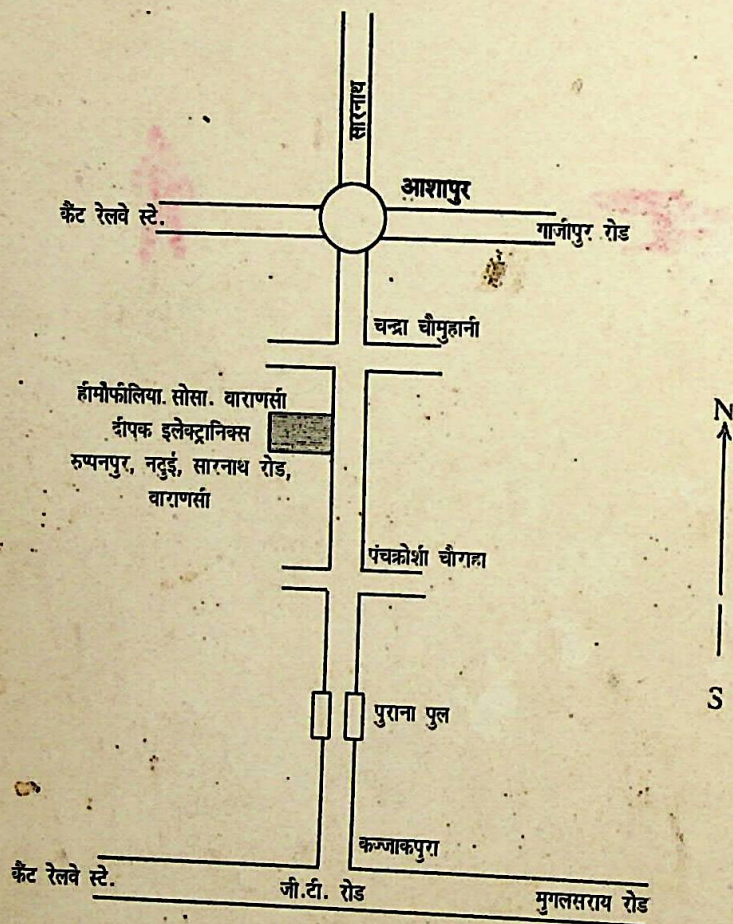 सारनाथ
आशापुर
कैंट रेलवे स्टे.
गाजीपुर रोड
चन्द्रा चौमुहानी
हीमोफीलिया. सोसा. वाराणसी
दीपक इलेक्ट्रानिक्स
रुप्पनपुर, नदुई, सारनाथ रोड,
वाराणसी
N
पंचक्रोशी चौराहा
S
पुराना पुल
कज्जाकपुरा
कैंट रेलवे स्टे.
जी.टी. रोड
मुगलसराय रोड